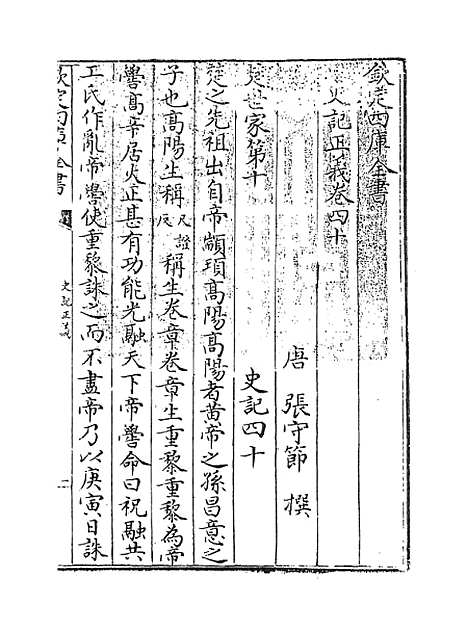 欽定四庫全書
史記正義卷四十
唐 張守節 撰
楚世家第十 史記四十
楚之先祖出自帝顓頊髙陽髙陽者黄帝之孫昌意之
子也髙陽生稱尺證反稱生卷章卷章生重黎重黎為帝
嚳髙辛居火正甚有功能光融天下帝嚳命曰祝融共
工氏作亂帝嚳使重黎誅之而不盡帝乃以庚寅日誅
欽定四庫全書
史記正義
一